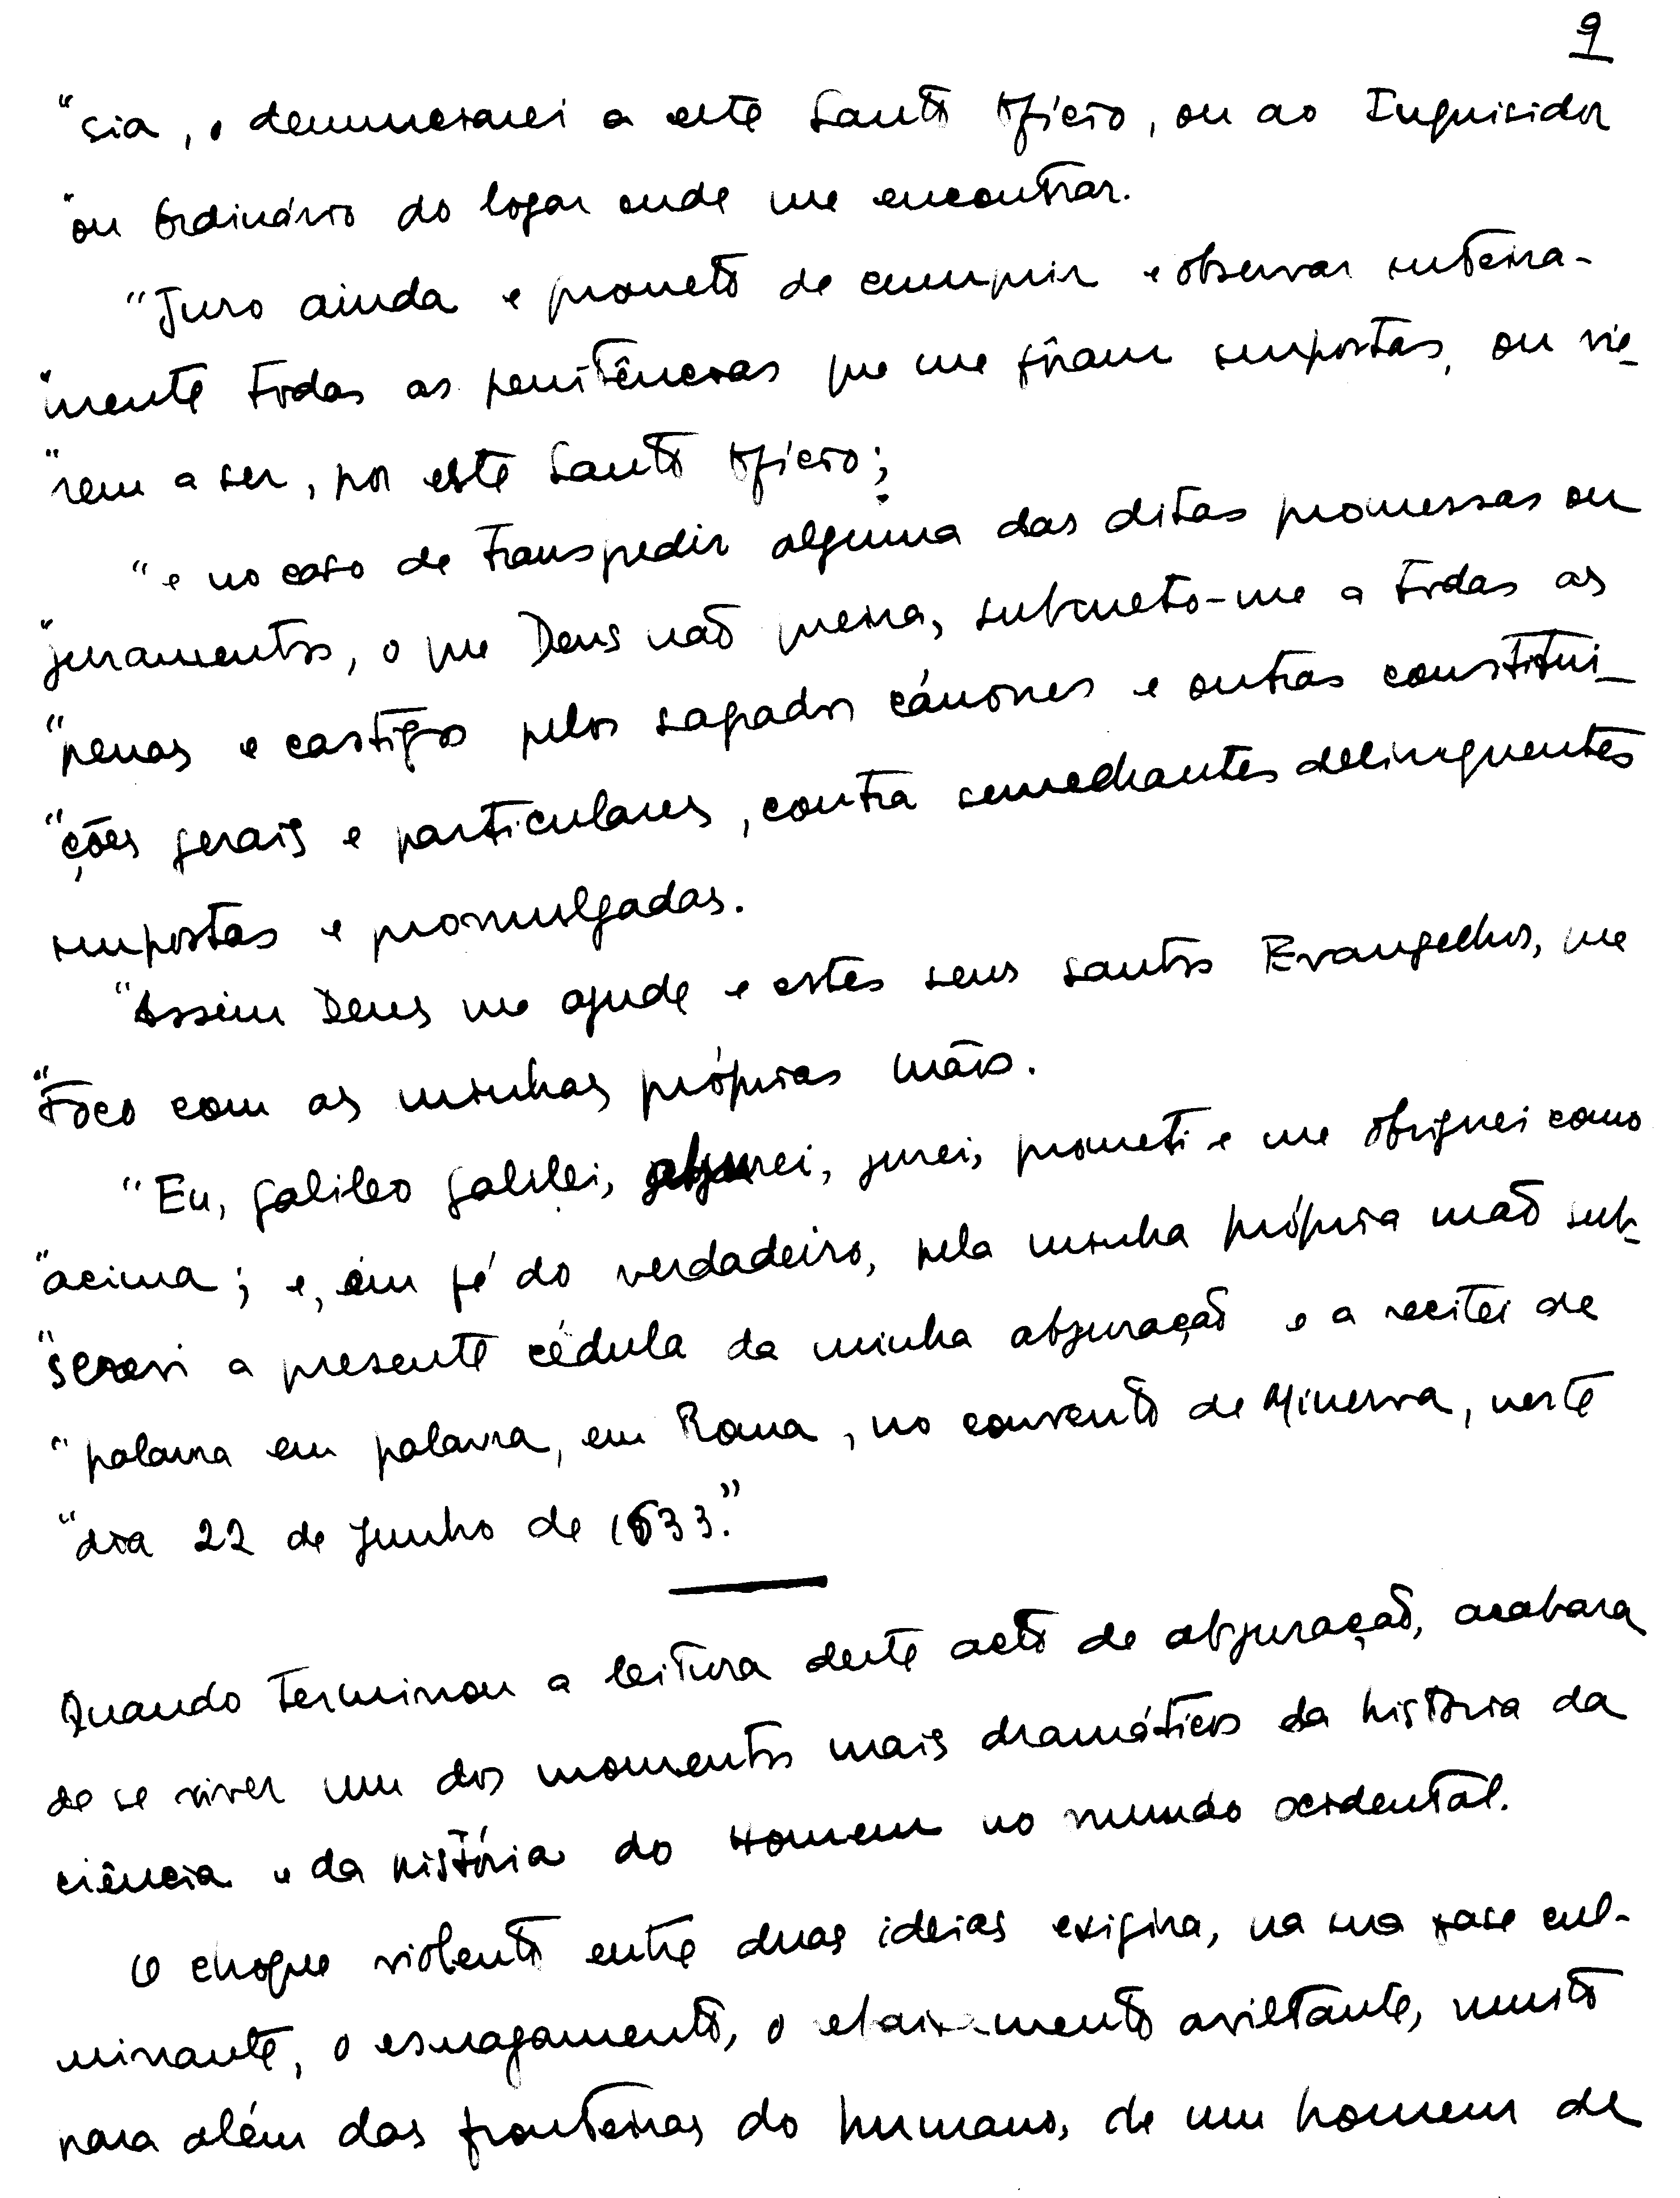 9
"sia, o denunciarei a este Santo Ofício, ou ao Inquisidor
"ou Ordinário do logar onde me encontrar.
"Juro ainda e prometo de cumprir e observar inteira-
"mente todas as penitências que me fôram impostas, ou vie-
"rem a ser, por este Santo Ofício;
"e no caso de transgredir alguma das ditas promessas ou
"juramentos, o que Deus não queira, submeto-me a todas as
"penas e castigos pelos sagrados cánones e outras constitui-
"ções gerais e particulares, contra semelhantes delinquentes
impostas e promulgadas.
"Assim Deus me ajude e estes seus santos Evangelhos, que
"toco com as minhas próprias mãos.
"Eu, Galileo Galilei, abjurei, jurei, prometi e me obriguei como
"acima; e, em fé do verdadeiro, pela minha própria mão sub-
"screvi a presente cédula da minha abjuração e a recitei de
"palavra em palavra, em Roma, no convento de Minerva, neste
"dia 22 de junho de 1633."
Quando terminou a leitura deste acto de abjuração, acabara
de se viver um dos momentos mais dramáticos da história da
ciência e da história do Homem no mundo ocidental.
O choque violento entre duas ideias exigira, na sua fase cul-
minante, o esmagamento, o abaixamento aviltante, muito
para além das fronteiras do humano, de um homem de